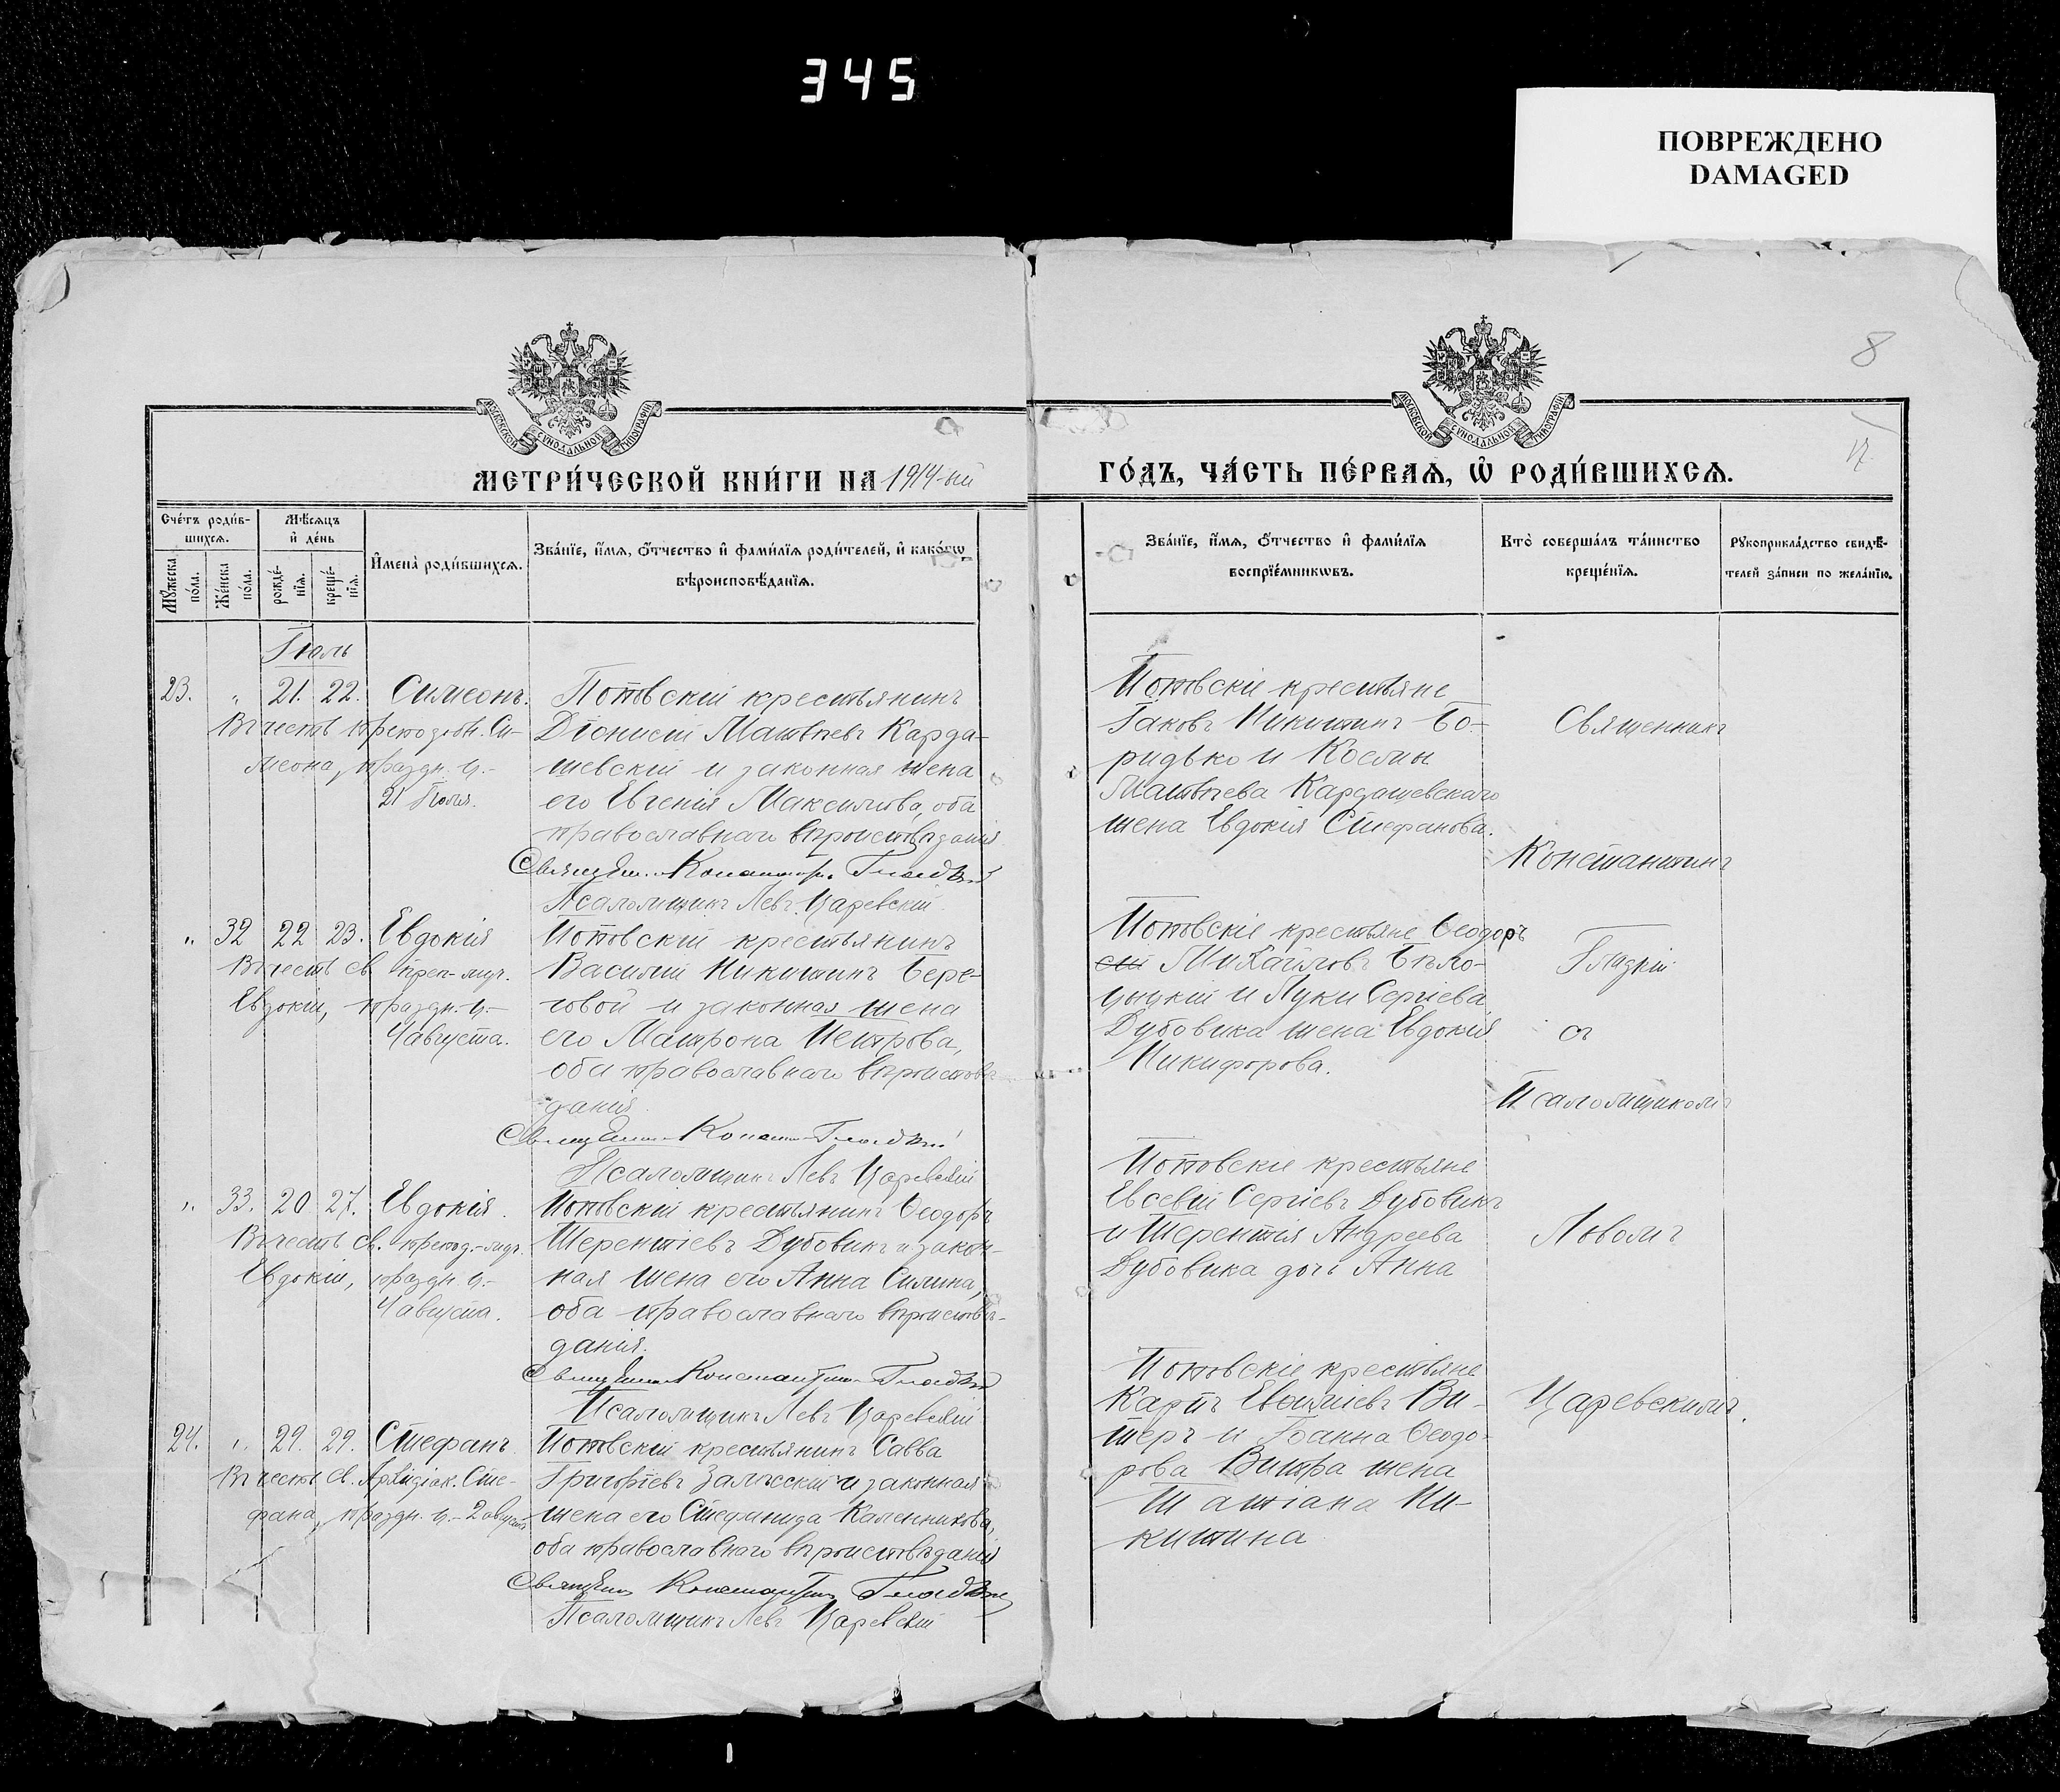 345
ПОВРЕЖДЕНО
DAMAGED
8
МЕТРИ́ЧЕСКОЙ КНИ́ГИ НА 1914-ый
ГО́ДЪ, ЧА́СТЬ ПЕ́РВАѦ, Ѡ҆ РОДИ́ВШИХСѦ.
МОСКОВСКОЙ СѴНОДАЛЬНОЙ ТИПОГРАФІИ
МОСКОВСКОЙ СѴНОДАЛЬНОЙ ТИПОГРАФІИ
Сче́тъ роди́в-
шихсѧ.
Мꙋ́жеска по́ла.
Же́нска по́ла.
Мѣ́сѧцъ
и҆ де́нь
рожде́-
нїѧ.
креще́-
нїѧ.
И҆мена̀ роди́вшихсѧ.
Зва́нїе, и҆́мѧ, ѻ҆́тчество и҆ фами́лїѧ роди́телей, и҆ како́гѡ
вѣроисповѣ́данїѧ.
Зва́нїе, и҆́мѧ, ѻ҆́тчество и҆ фами́лїѧ
воспрїе́мникѡвъ.
Кто̀ соверша́лъ та́инство
креще́нїѧ.
Рꙋкоприкла́дство свидѣ́-
телей за́писи по жела́нїю.
Іюль
23. „ 21. 22. Симеонъ.
Въ честь преподобн. Си-
меона, праздн. ц.-
21 Іюля.
Потовскій крестьянинъ
Діонисій Матвѣевъ Карда-
шевскій и законная жена
его Евгенія Максимова, оба
православнаго вѣроисповѣданія
Священ. Констант. Гладкій
Псаломщикъ Левъ Царевскій
Потовскіе крестьяне
Іаковъ Никитинъ Бо-
ридько и Космы
Матвѣева Кардашевскаго
жена Евдокія Стефанова.
„ 32 22 23. Евдокія
Въ честь св. преп-муч.
Евдокіи, праздн. ц.-
4 августа.
Потовскій крестьянинъ
Василій Никитинъ Бере-
говой и законная жена
его Матрона Петрова,
оба православнаго вѣроисповѣ-
данія.
Священ. Констан. Гладкій
Псаломщикъ Левъ Царевскій
Потовскіе крестьяне Ѳеодоръ
Михайловъ Бѣло-
цыцкій и Луки Сергіева
Дубовика жена Евдокія
Никифорова.
„ 33. 20 27. Евдокія.
Въ честь св. препод.-муч.
Евдокіи, праздн. ц.-
4 августа.
Потовскій крестьянинъ Ѳеодоръ
Терентіевъ Дубовикъ и закон-
ная жена его Анна Силина,
оба православнаго вѣроисповѣ-
данія.
Священ. Константин. Гладкій
Псаломщикъ Левъ Царевскій
Потовскіе крестьяне
Евсевій Сергіевъ Дубовикъ
и Терентія Андреева
Дубовика дочь Анна
24. „ 29. 29. Стефанъ
Въ честь св. Архидіак. Сте-
фана, праздн. ц.- 2 августа
Потовскій крестьянинъ Савва
Григоріевъ Залѣсскій и законная
жена его Стефанида Каленникова,
оба православнаго вѣроисповѣданія
Священ. Константин. Гладкій
Псаломщикъ Левъ Царевскій
Потовскіе крестьяне
Карпъ Евѳиміевъ Ви-
теръ и Іоанна Ѳеодо-
рова Витра жена
Татіана Ни-
китина
Священникъ
Константинъ
Гладкій
съ
Псаломщикомъ
Львомъ
Царевскимъ.